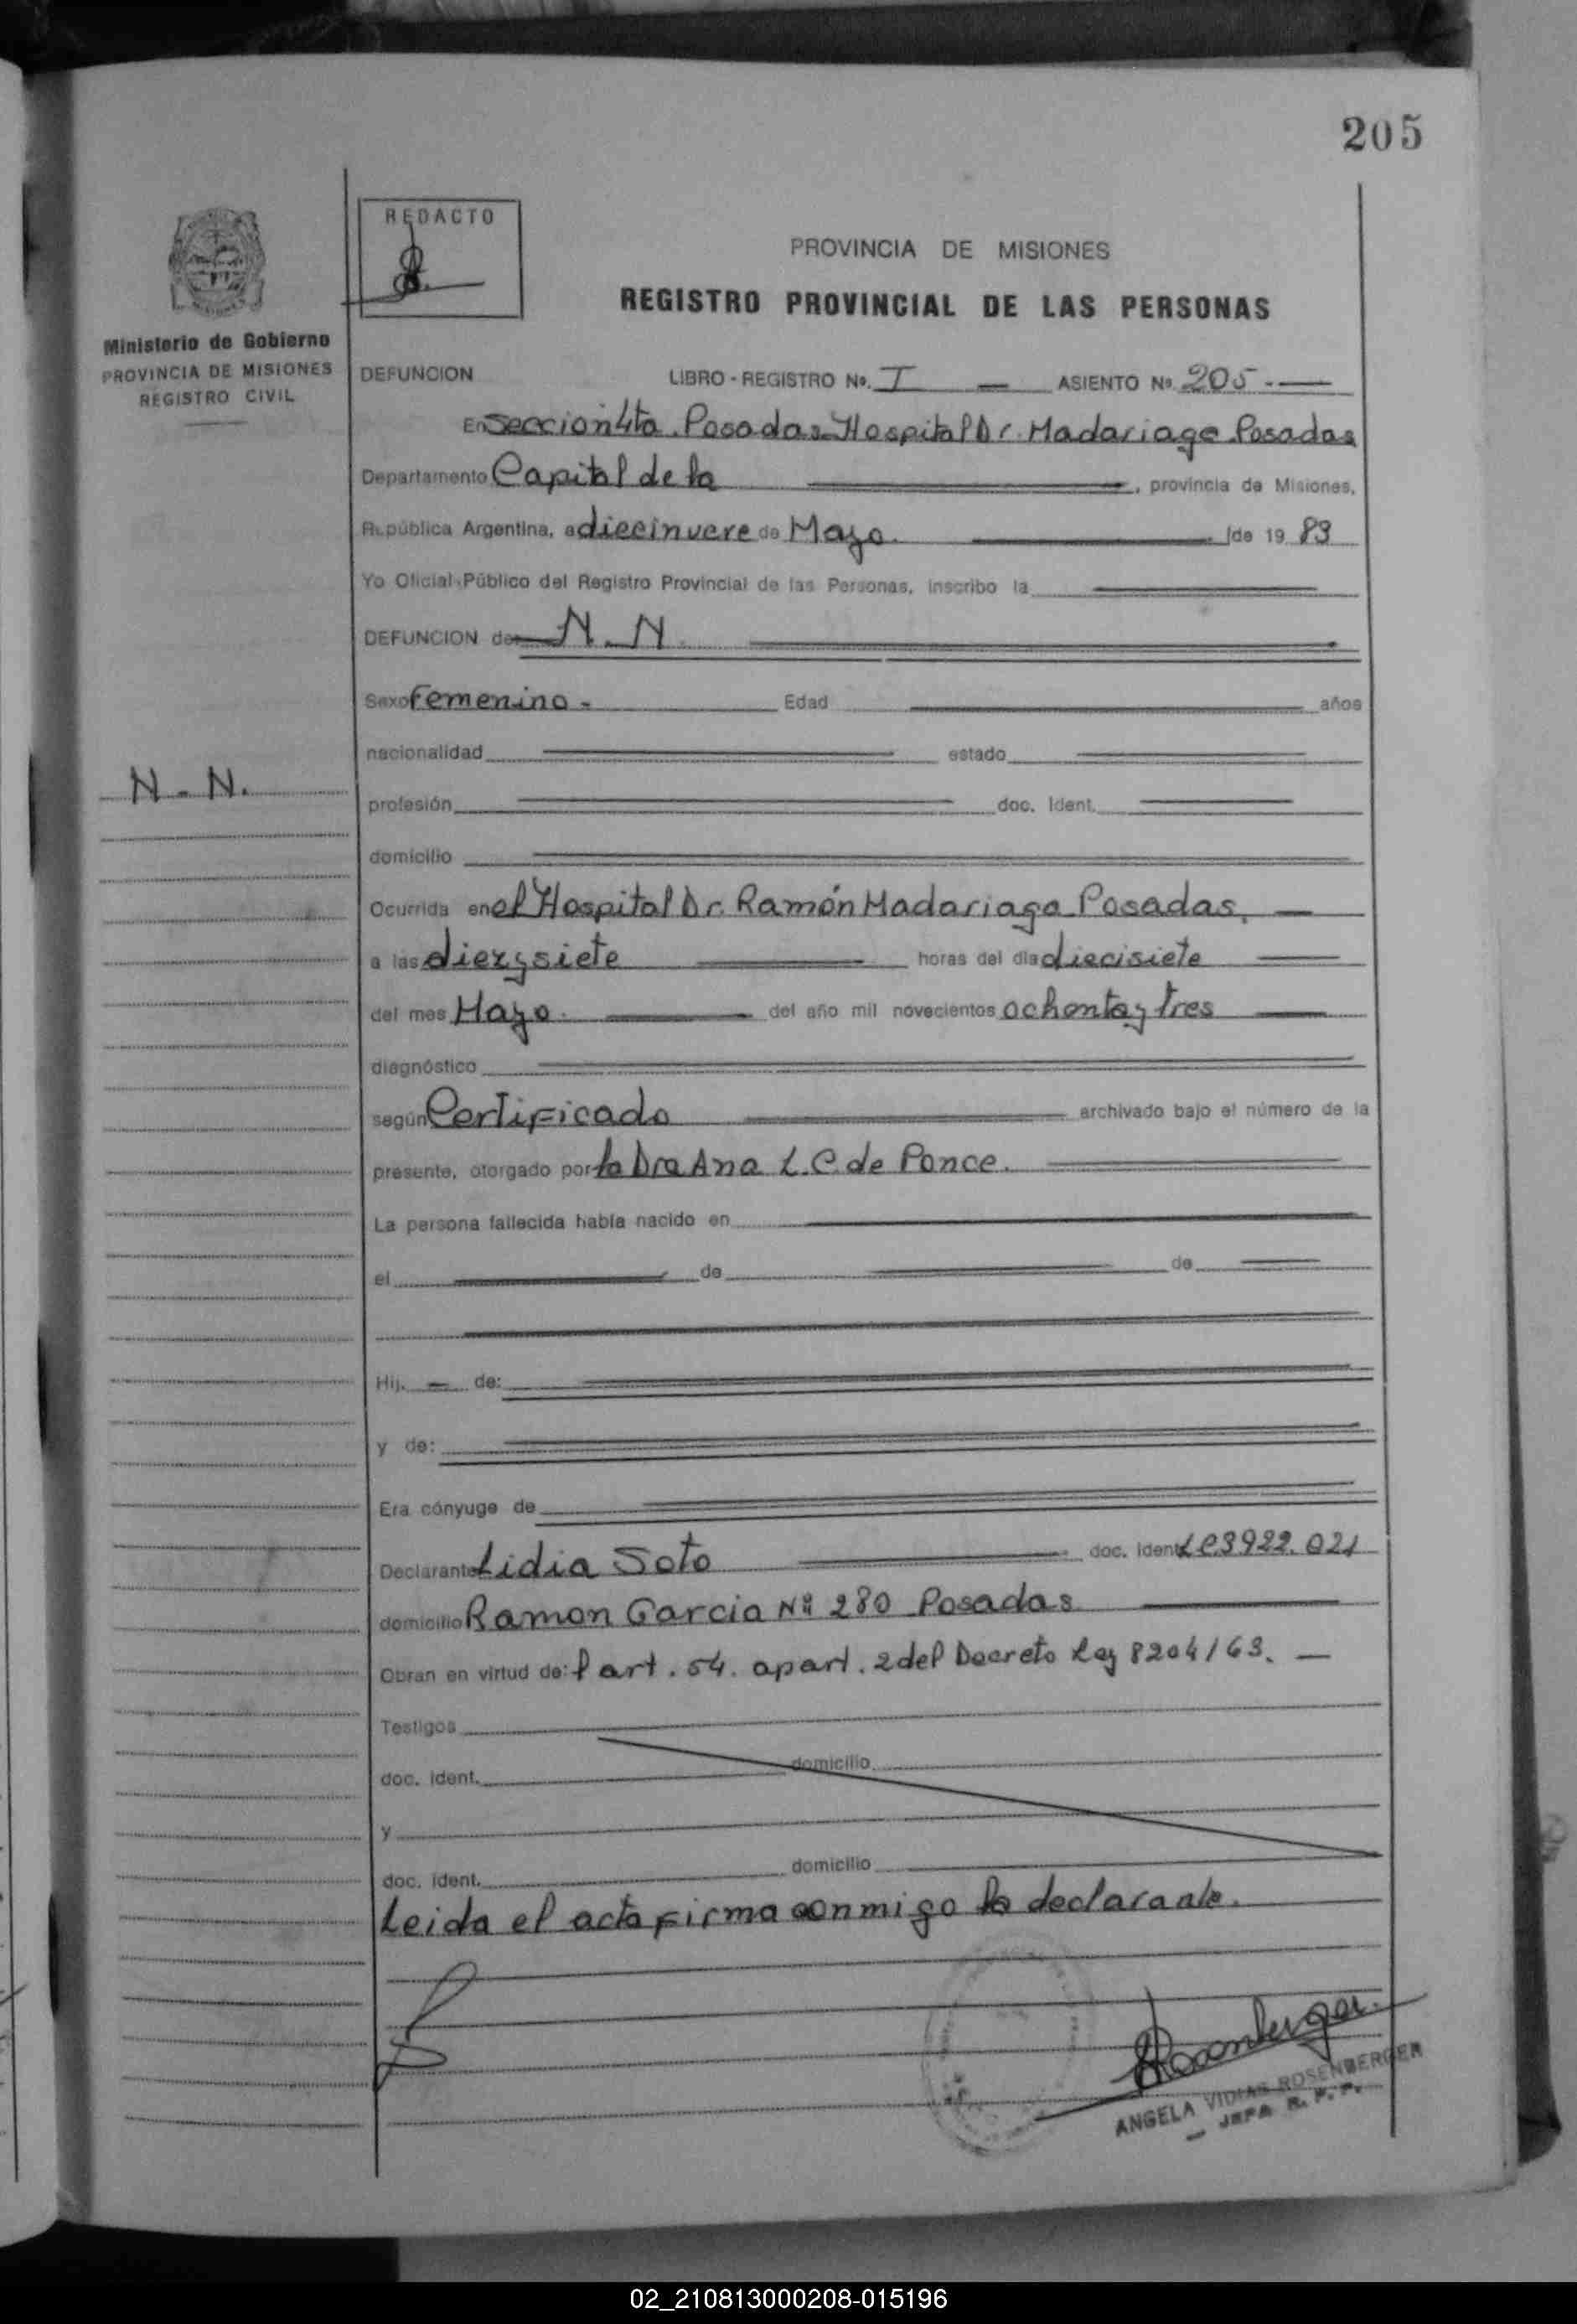 205
REDACTO
PROVINCIA DE MISIONES
REGISTRO PROVINCIAL DE LAS PERSONAS
Ministerio de Gobierno
PROVINCIA DE MISIONES
REGISTRO CIVIL
DEFUNCION LIBRO - REGISTRO Nº. I — ASIENTO Nº 205.-—
En Seccion 4ta. Posadas Hospital Dr. Madariaga Posadas
Departamento Capital de la, provincia de Misiones,
República Argentina, a diecinueve de Mayo. de 19 83
Yo Oficial Público del Registro Provincial de las Personas, inscribo la
DEFUNCION de N. N.
Sexo Femenino - Edad años
nacionalidad estado
N. N.
profesión doc. Ident.
domicilio
Ocurrida en el Hospital Dr. Ramón Madariaga Posadas. —
a las diez y siete horas del día diecisiete
del mes Mayo. del año mil novecientos ochenta y tres
diagnóstico
según Certificado archivado bajo el número de la
presente, otorgado por la Dra Ana L. C. de Ponce.
La persona fallecida había nacido en
el de de
Hij. — de:
y de:
Era cónyuge de
Declarante Lidia Soto doc. ident LC 3922.021
domicilio Ramon Garcia Nº 280 Posadas
Obran en virtud de: l art. 54. apart. 2 del Decreto Ley 8204/63. —
Testigos
doc. ident. domicilio
y
doc. ident. domicilio
Leida el acta firma conmigo la declarante.
Rosenberger
ANGELA VIDIAS ROSENBERGER
— JEFA R. P. P.
02_210813000208-015196